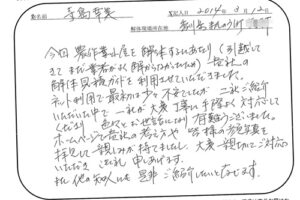 御名前 記入日 2014年3月12日
解体現場所在地
今回農作業小屋を解体するにあたり(引越して
きてまだ業者がよく分からなかったため)貴社の
解体見積ガイドを利用させていただきました。
ネット利用で最初は少々不安でしたが二社ご紹介
いただいた中で一社が大変丁寧に手際よく対応して
くださり 色々とお世話になり有難うございました。
ホームページで貴社の考え方や皆様の参加写真を
拝見して親しみが持てました。大変親切にご対応
いただき お礼申しあげます。
私他の知人にも是非ご紹介したいと存じます。